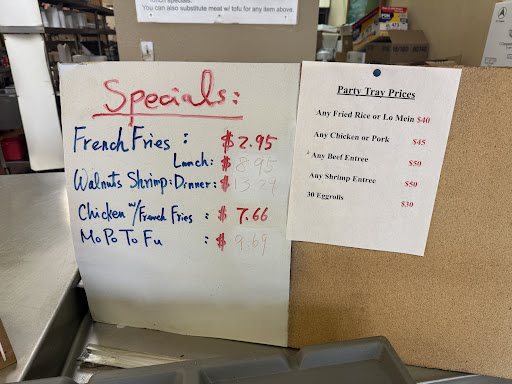 lunch specials.
You can also substitute meat w/ tofu for any item above
Specials:
French Fries : $2.95
Lunch: $8.95
Walnuts Shrimp: Dinner: $13.29
Chicken w/French Fries : $7.66
MoPo To Fu : $9.69
Party Tray Prices
Any Fried Rice or Lo Mein $40
Any Chicken or Pork $45
Any Beef Entree $50
Any Shrimp Entree $50
30 Eggrolls $30